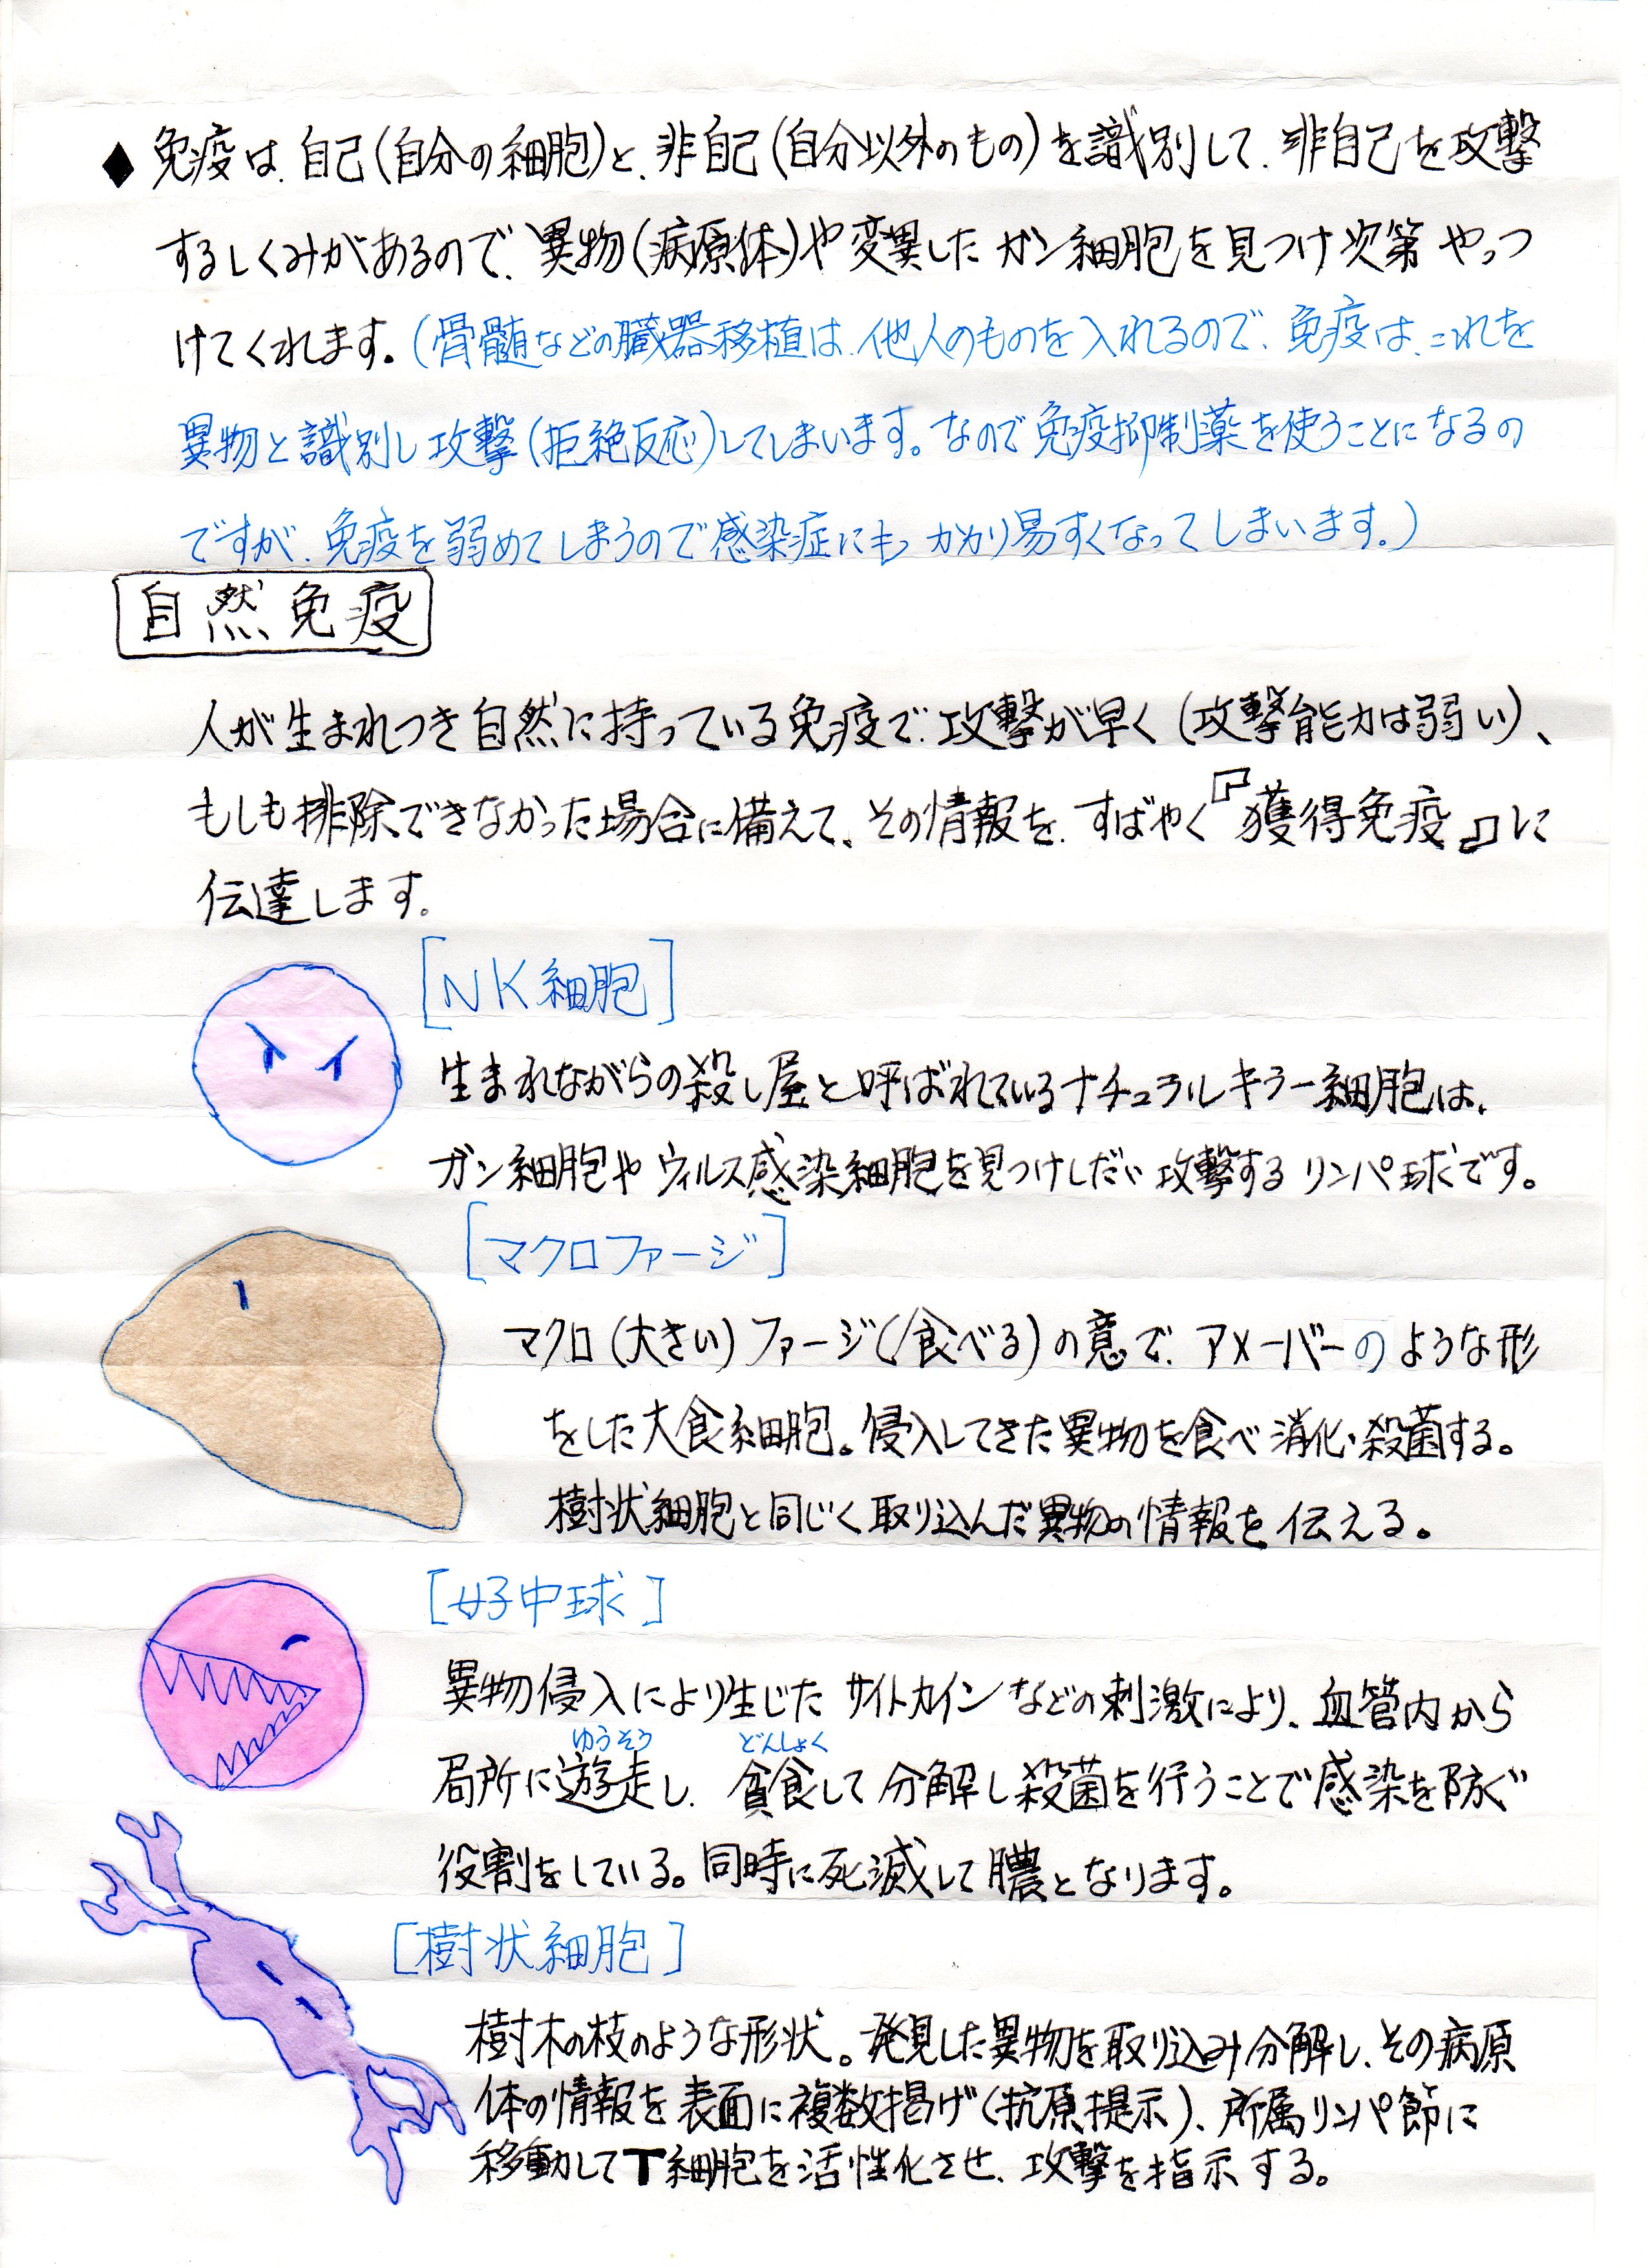 ◆ 免疫は、自己(自分の細胞)と、非自己(自分以外のもの)を識別して、非自己を攻撃
するしくみがあるので、異物(病原体)や変異したガン細胞を見つけ次第やっつ
けてくれます。(骨髄などの臓器移植は、他人のものを入れるので、免疫は、これを
異物と識別し攻撃(拒絶反応)してしまいます。なので免疫抑制薬を使うことになるの
ですが、免疫を弱めてしまうので感染症にもかかり易すくなってしまいます。)
自然免疫
人が生まれつき自然に持っている免疫で、攻撃が早く(攻撃能力は弱い)、
もしも排除できなかった場合に備えて、その情報を、すばやく『獲得免疫』に
伝達します。
[NK細胞]
生まれながらの殺し屋と呼ばれているナチュラルキラー細胞は、
ガン細胞やウィルス感染細胞を見つけしだい攻撃するリンパ球です。
[マクロファージ]
マクロ(大さい)ファージ(食べる)の意で、アメーバーのような形
をした大食細胞。侵入してきた異物を食べ消化・殺菌する。
樹状細胞と同じく取り込んだ異物の情報を伝える。
[好中球]
異物侵入により生じたサイトカインなどの刺激により、血管内から
ゆうそう どんしょく
局所に遊走し、貪食して分解し殺菌を行うことで感染を防ぐ
役割をしている。同時に死滅して膿となります。
[樹状細胞]
樹木の枝のような形状。発見した異物を取り込み分解し、その病原
体の情報を表面に複数掲げ(抗原提示)、所属リンパ節に
移動してT細胞を活性化させ、攻撃を指示する。